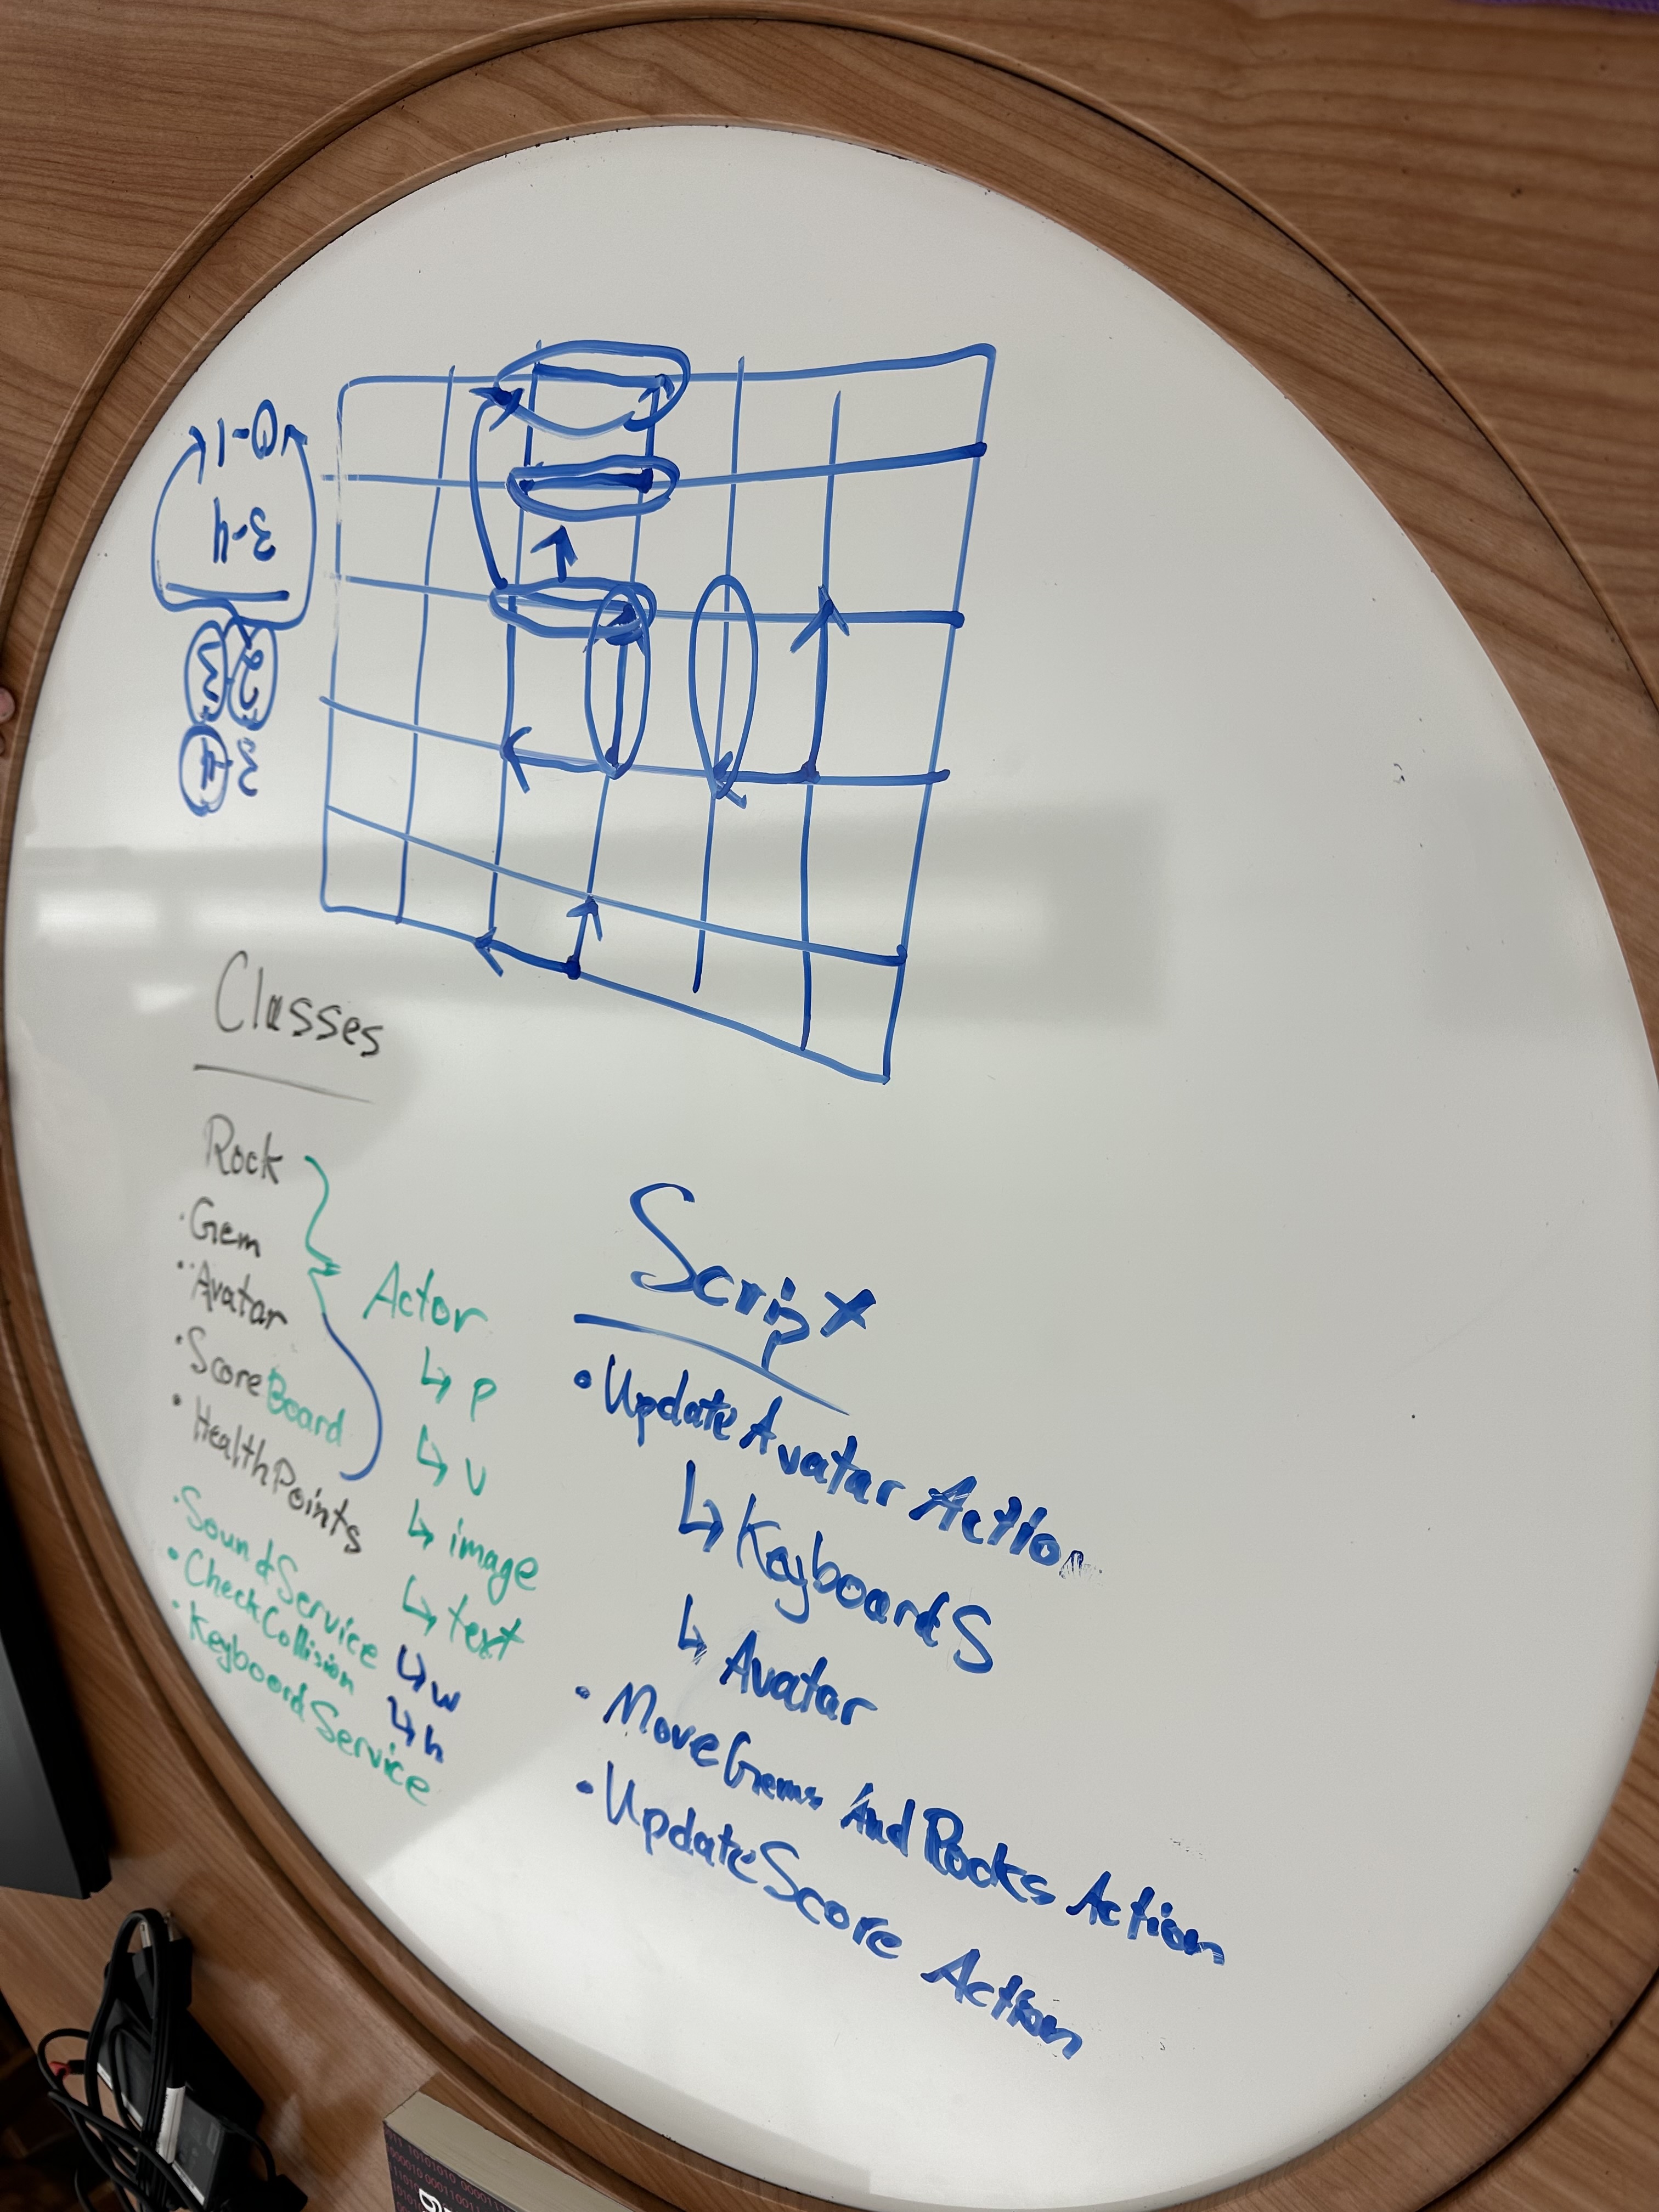 Classes
Rock
· Gem
· Avatar
· ScoreBoard
· HealthPoints
· SoundService
· CheckCollision
· KeyboardService
Actor
↳ p
↳ v
↳ image
↳ text
↳ w
↳ h
Script
• UpdateAvatar Action
↳ KeyboardS
↳ Avatar
• MoveGems And Rocks Action
• UpdateScore Action